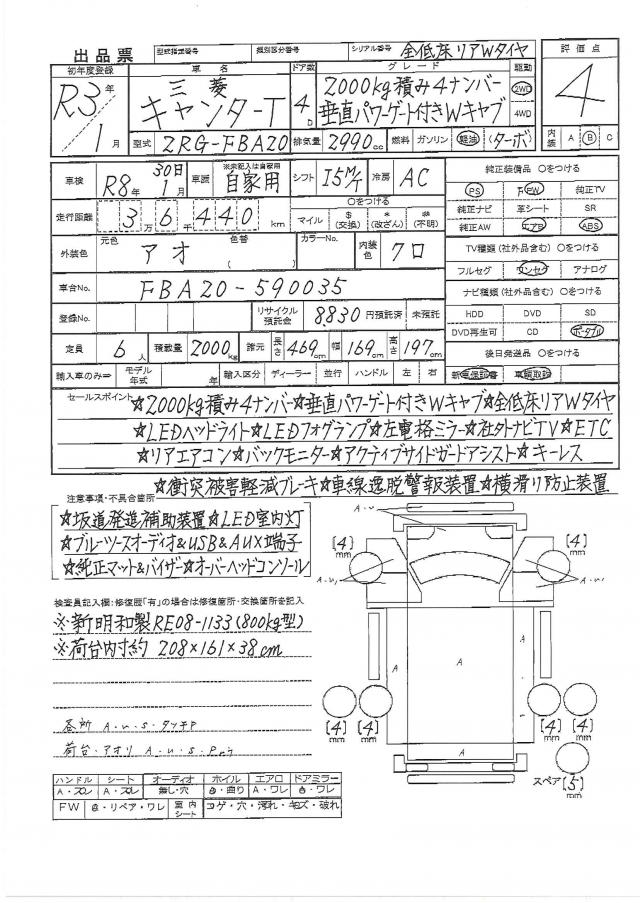 出品票
型式指定番号 類別区分番号 シリアル番号 全低床リアWタイヤ
初年度登録 R3年 1月
車名 三菱 キャンターT
ドア数 4D
グレード 2000kg積み4ナンバー 垂直パワーゲート付きWキャブ
駆動 2WD 4WD
評価点 4
内装 A B C
型式 2RG-FBA20 排気量 2990cc 燃料 ガソリン 軽油 (ターボ)
車検 R8年 1月 30日 車歴 ※未記入は自家用 自家用 シフト I5M/T 冷房 AC
走行距離 3万6千440km
○をつける
マイル $(交換) *(改ざん) #(不明)
外装色 元色 アオ 色替 ( ) カラーNo. 内装色 クロ
車台No. FBA20-590035
登録No. リサイクル預託金 8830円預託済 未預託
定員 6人 積載量 2000kg 諸元 長さ 469cm 幅 169cm 高さ 197cm
輸入車のみ⇒ モデル年式 年 輸入区分 ディーラー 並行 ハンドル 左 右
純正装備品 ○をつける
PS PW 純正TV
純正ナビ 革シート SR
純正AW エアB ABS
TV種類(社外品含む) ○をつける
フルセグ ワンセグ アナログ
ナビ種類(社外品含む) ○をつける
HDD DVD SD
DVD再生可 CD ポータブル
後日発送品 ○をつける
新車保証書 車輌取説
セールスポイント ☆2000kg積み4ナンバー☆垂直パワーゲート付きWキャブ☆全低床リアWタイヤ
☆LEDヘッドライト☆LEDフォグランプ☆左電格ミラー☆社外ナビTV☆ETC
☆リアエアコン☆バックモニター☆アクティブサイドガードアシスト☆キーレス
☆衝突被害軽減ブレーキ☆車線逸脱警報装置☆横滑り防止装置
注意事項・不具合箇所
☆坂道発進補助装置☆LED室内灯
☆ブルーツースオーディオ&USB&AUX端子
☆純正マット&バイザー☆オーバーヘッドコンソール
検査員記入欄:修復歴「有」の場合は修復箇所・交換箇所を記入
※新明和製RE08-1133(800kg型)
※荷台内寸約 208×161×38cm
各所 A.u.S.タッチP
荷台・アオリ A.u.S.Pより
ハンドル シート オーディオ ホイル エアロ ドアミラー
A・スレ A・スレ 無し・穴 曲り A・ワレ ワレ
FW リペア・ワレ 室内シート コゲ・穴・汚れ・キズ・破れ
A・u
[4]mm [4]mm
A・u, A・u,
A A
[4]mm [4]mm [4]mm
A
スペア[5]mm